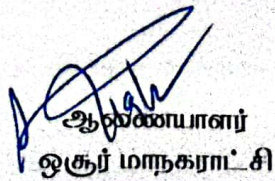 ஆணையாளர்
ஓசூர் மாநகராட்சி